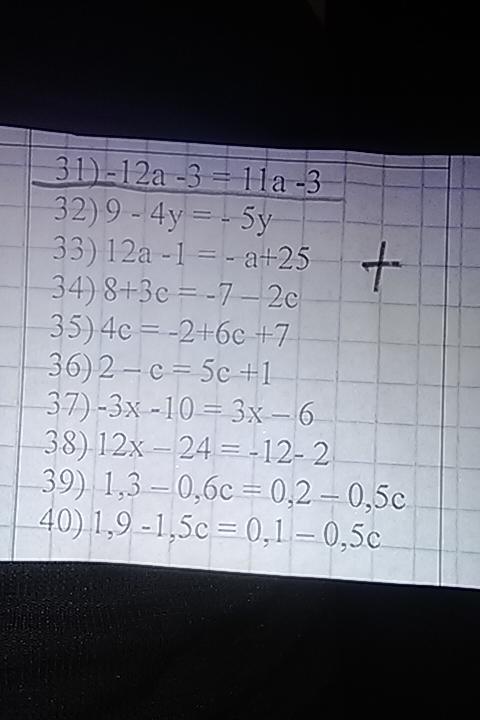 31) -12a -3 = 11a -3
32) 9 - 4y = - 5y
33) 12a -1 = - a+25
34) 8+3c = -7 – 2c
35) 4c = -2+6c +7
36) 2 – c = 5c +1
37) -3x -10 = 3x – 6
38) 12x – 24 = -12- 2
39) 1,3 – 0,6c = 0,2 – 0,5c
40) 1,9 -1,5c = 0,1 – 0,5c
+